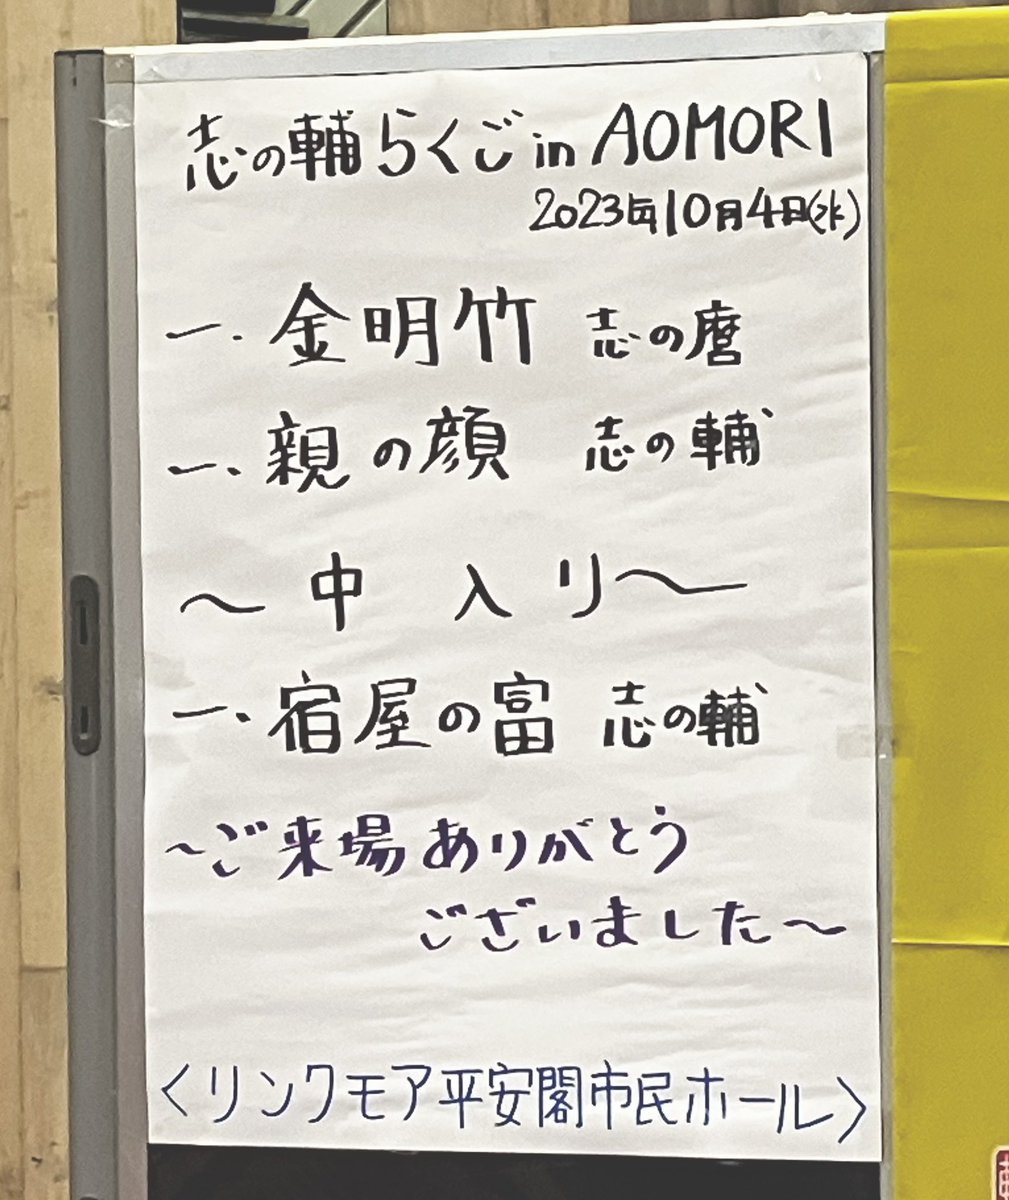 志の輔らくご in AOMORI
2023年10月4日(水)
一. 金明竹 志の麿
一、親の顔 志の輔
〜中入り〜
一、宿屋の富 志の輔
〜ご来場ありがとう
ございました〜
〈リンクモア平安閣市民ホール〉